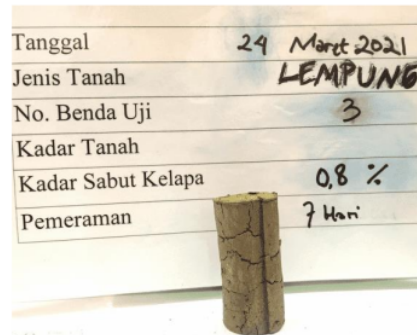 Tanggal 24 Maret 2021
Jenis Tanah LEMPUNG
No. Benda Uji 3
Kadar Tanah
Kadar Sabut Kelapa 0,8 %
Pemeraman 7 Hari